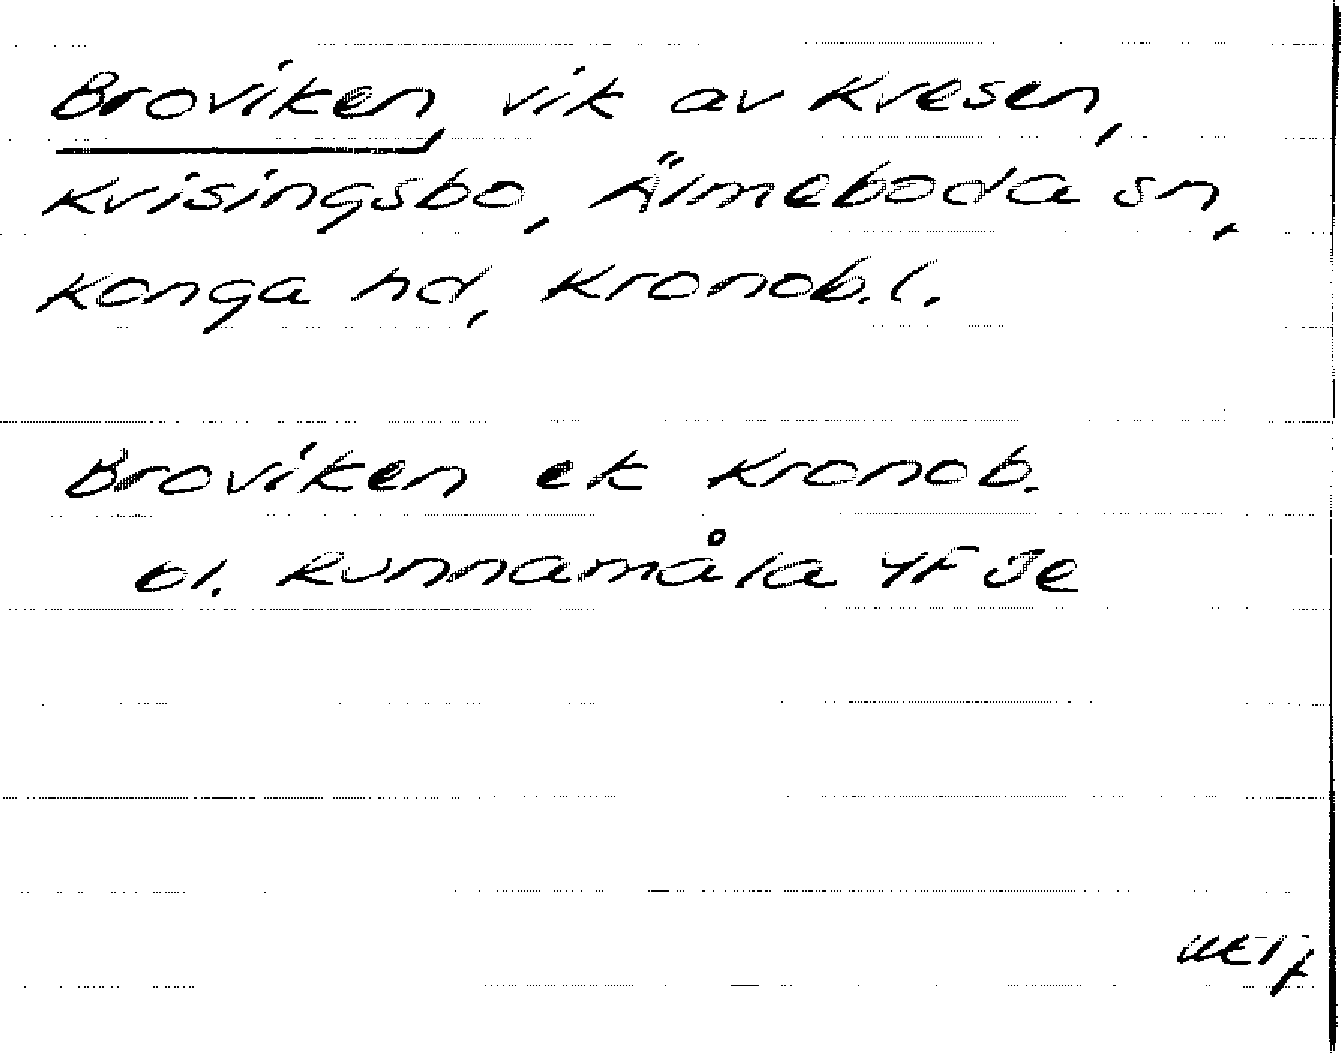 Broviken, vik av Kvesen,
Krisingsbo, Älmeboda sn,
Konga hd, Kronob. l.
Broviken ek Kronob.
bl. Runnamåla 4F Je